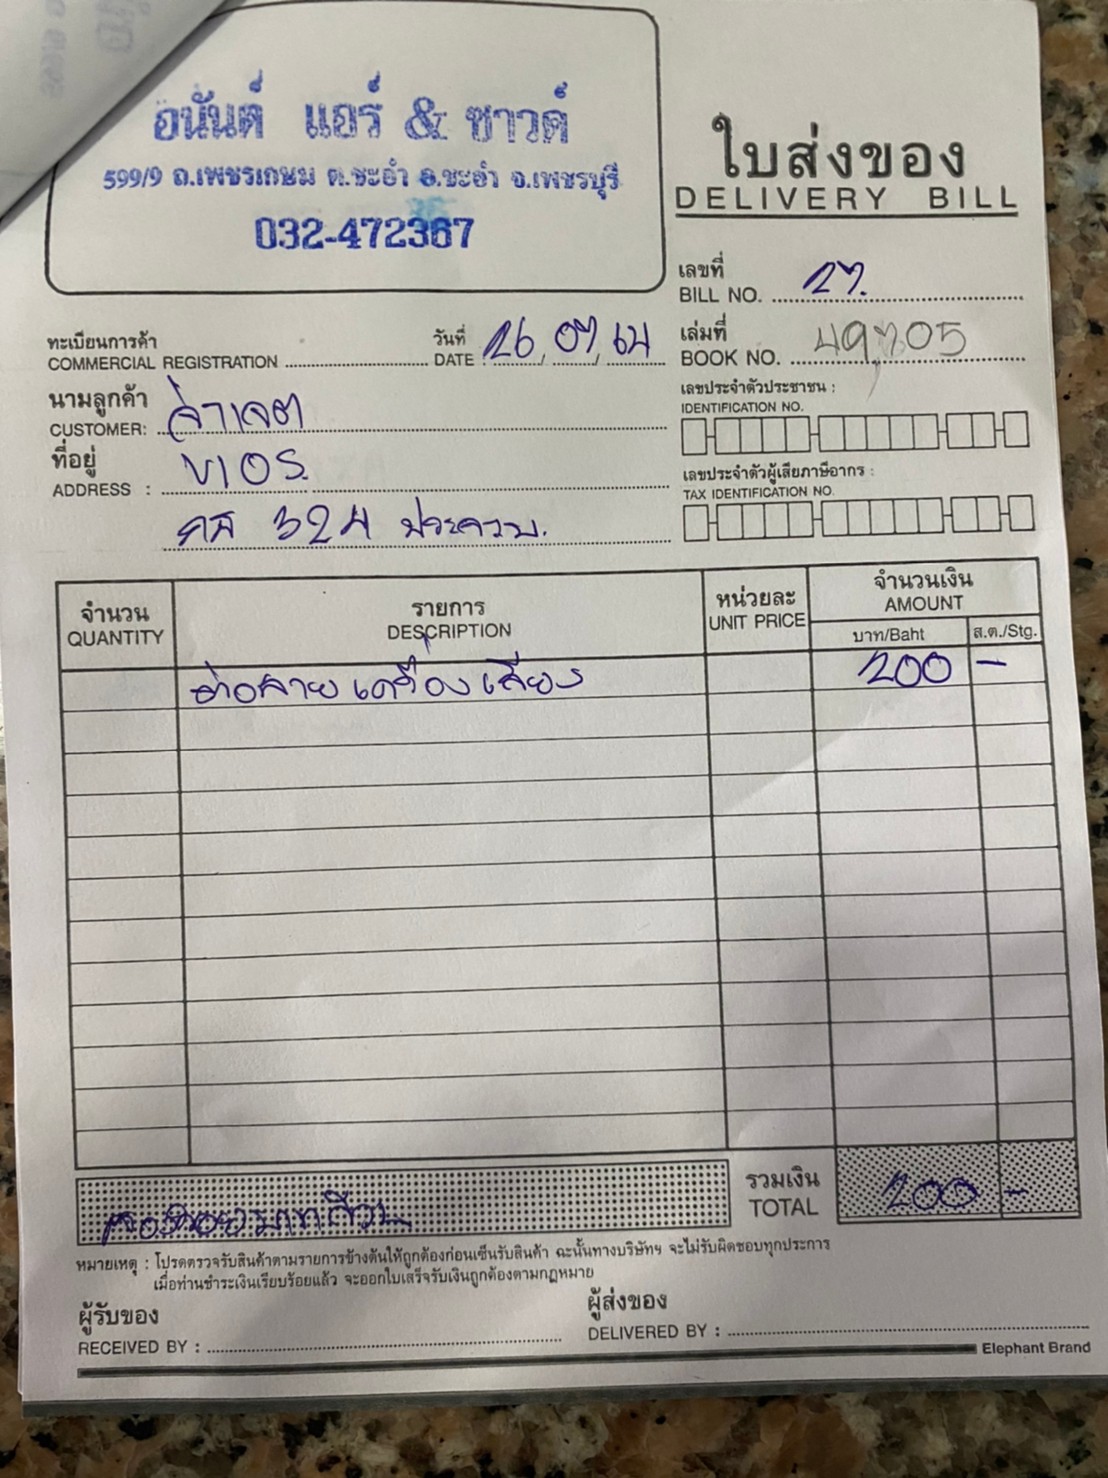 อนันต์ แอร์ & ซาวด์
599/9 ถ.เพชรเกษม ต.ชะอำ อ.ชะอำ จ.เพชรบุรี
032-472367
ใบส่งของ
DELIVERY BILL
เลขที่
BILL NO. 27.
ทะเบียนการค้า
COMMERCIAL REGISTRATION
วันที่
DATE 26, 07, 64
เล่มที่
BOOK NO.
นามลูกค้า
CUSTOMER:
เลขประจำตัวประชาชน :
IDENTIFICATION NO.
ที่อยู่
ADDRESS : VIOS.
เลขประจำตัวผู้เสียภาษีอากร :
TAX IDENTIFICATION NO.
324 ประจวบ.
จำนวน
QUANTITY
รายการ
DESCRIPTION
หน่วยละ
UNIT PRICE
จำนวนเงิน
AMOUNT
บาท/Baht
ส.ต./Stg.
ต่อสาย เครื่องเสียง 200 -
รวมเงิน
TOTAL 200 -
สองร้อยบาทถ้วน
หมายเหตุ : โปรดตรวจรับสินค้าตามรายการข้างต้นให้ถูกต้องก่อนเซ็นรับสินค้า ฉะนั้นทางบริษัทฯ จะไม่รับผิดชอบทุกประการ
เมื่อท่านชำระเงินเรียบร้อยแล้ว จะออกใบเสร็จรับเงินถูกต้องตามกฎหมาย
ผู้รับของ
RECEIVED BY :
ผู้ส่งของ
DELIVERED BY :
Elephant Brand